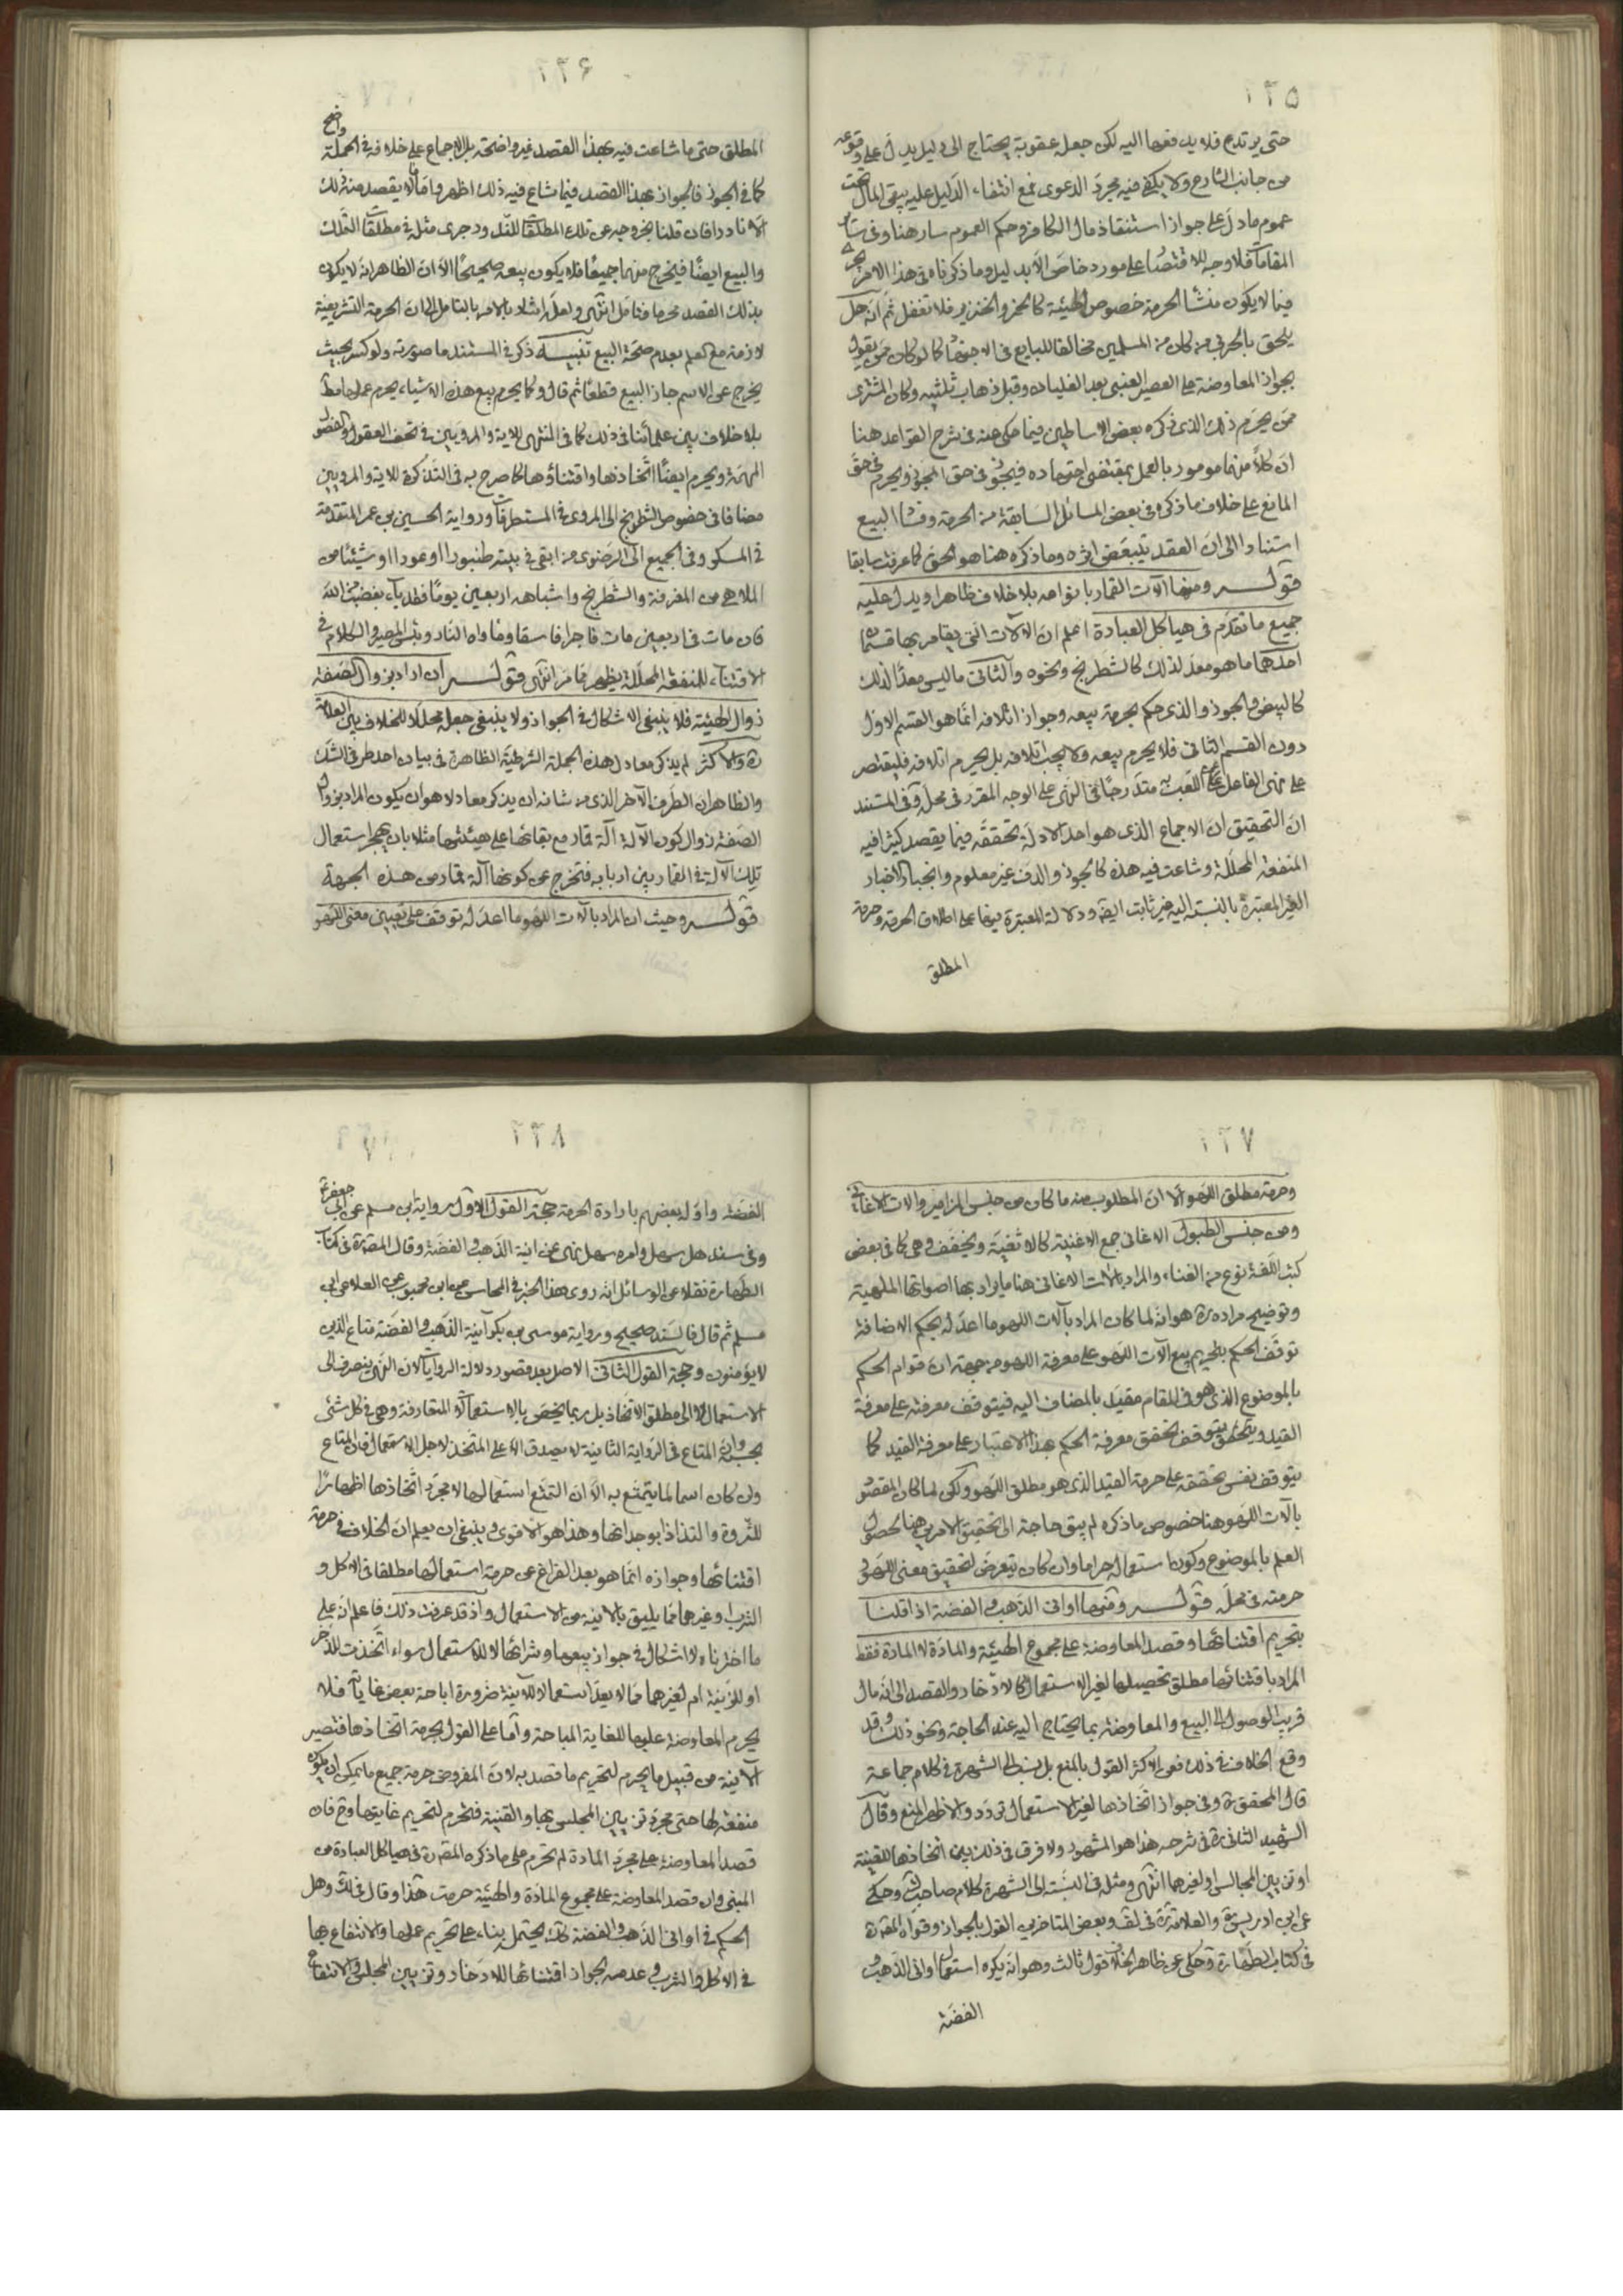 ٢٢٥
حتى يرتدع فلا يدفعها اليه لكن جعله عقوبة يحتاج الى دليل يدل على وقوعه
من جانب الشارع ولا يكفى فيه مجرد الدعوى فمع انتفاء الدليل عليه يبقى المال تحت
عموم ما دل على جواز استنقاذ مال الكافر وحكم العموم سار هنا وفى سائر
المقامات فلا وجه للاقتصار على مورد خاص الا بدليل وما ذكرناه فى هذا الامر يجرى
فيما لا يكون منشأ الحرمة خصوص الهيئة كالخمر والخنزير فلا تغفل ثم انه هل
يلحق بالحربى من كان من المسلمين مخالفا للبايع فى الاجتهاد كما لو كان ممن يقول
بجواز المعاوضة على العصير العنبى بعد الغليان وقبل ذهاب ثلثيه وكان المشترى
ممن يحرم ذلك الذى ذكره بعض الاساطين فيما حكى عنه فى شرح القواعد هنا
ان كلاً منهما مأمور بالعمل بمقتضى اجتهاده فيجوز فى حق المجوز ويحرم فى حق
المانع على خلاف ما ذكره فى بعض المسائل السابقة من الحرمة وفساد البيع
استنادا الى ان العقد يتبعض اثره وما ذكره هنا هو الحق كما عرفت سابقا
قوله ومنها آلات القمار بانواعه بلا خلاف ظاهرا ويدل عليه
جميع ما تقدم فى هياكل العبادة اعلم ان الآلات التى يقامر بها قسمان
احدهما ما هو معد لذلك كالشطرنج ونحوه والثانى ما ليس معدا لذلك
كالبيض والجوز والذى حكم بحرمة بيعه وجواز اتلافه انما هو القسم الاول
دون القسم الثانى فلا يحرم بيعه ولا يجب اتلافه بل يحرم اتلافه فليقتصر
على نهى الفاعل عن اللعب به متدرجا فى النهى على الوجه المقرر فى محله وفى المستند
ان التحقيق ان الاجماع الذى هو احد الادلة تحققه فيما يقصد كثيرا فيه
المنفعة المحللة وشاعت فيه هذه كالجوز والدف غير معلوم وانجبار الاخبار
الغير المعتبرة بالنسبة اليه غير ثابت ايضا ودلالة المعتبرة منها على اطلاق الحرمة وحرمة
المطلق
٢٢۶
المطلق حتى ما شاعت فيه بهذا القصد غير واضحة بل الاجماع على خلافه فى الجملة واضح
كما فى الجوز فالجواز بهذا القصد فيما شاع فيه ذلك اظهر واما ما لا يقصد منه ذلك
الا نادرا فان قلنا بخروجه عن تلك المطلقات للندرة جرى مثله فى مطلقات التملك
والبيع ايضًا فيخرج منهما جميعًا فلا يكون بيعه صحيحًا الا ان الظاهر انه لا يكون
بذلك القصد محرما فتأمل انتهى ولعله اشار بالامر بالتامل الى ان الحرمة التشريعية
لازمة مع العلم بعدم صحة البيع تنبيـــه ذكر فى المستند ما صورته ولو كسر بحيث
يخرج عن الاسم جاز البيع قطعًا ثم قال وكما يحرم بيع هذه الاشياء يحرم عملها مط
بلا خلاف بين علمائنا فى ذلك كما فى المنتهى للاية والمرويين فى تحف العقول والفصول
المهمة ويحرم ايضًا اتخاذها واقتناؤها كما صرح به فى التذكرة للاية والمرويين
مضافا فى خصوص الشطرنج الى المروى فى المستطرفات ورواية الحسين بن عمر المتقدمة
فى المسكر وفى الجميع الى الرضوى من ابقى فى بيته طنبورا او عودا او شيئًا من
الملاهى من المعزفة والشطرنج واشباهه اربعين يومًا فقد باء بغضب من الله
فان مات فى اربعين مات فاجرا فاسقا ومأواه النار وبئس المصير والكلام فى
الاقتناء للمنفعة المحللة يظهر مما مر انتهى قوله ان اراد بزوال الصفة
زوال الهيئة فلا ينبغى الاشكال فى الجواز ولا ينبغى جعله محلا للخلاف بين العلامة
ره والاكثر لم يذكر معادل هذه الجملة الشرطية الظاهرة فى بيان احد طرفى الشك
والظاهر ان الطرف الآخر الذى من شانه ان يذكر معادلا هو ان يكون المراد بزوال
الصفة زوال كون الآلة آلة قمار مع بقائها على هيئتها مثلا بان يهجر استعمال
تلك الآلة فى القمار بين اربابه فتخرج عن كونها آلة قمار من هذه الجهة
قوله وحيث ان المراد بآلات اللهو ما اعد له توقف على تعيين معنى اللهو
٢٢٧
وحرمة مطلق اللهو الا ان المطلوب منه ما كان من جنس المزامير والات الاغانى
ومن جنس الطبول الاغانى جمع الاغنية كالاثفية وتخفف وهى كما فى بعض
كتب اللغة نوع من الغناء والمراد بالات الاغانى هنا ما يراد بها اصواتها الملهية
وتوضيح مراده ره هو انه لما كان المراد بآلات اللهو ما اعد له بحكم الاضافة
توقف الحكم بتحريم بيع آلات اللهو على معرفة اللهو من جهة ان قوام الحكم
بالموضوع الذى هو فى المقام مقيد بالمضاف اليه فيتوقف معرفته على معرفة
القيد ويتحقق بتوقف تحقق معرفة الحكم بهذا الاعتبار على معرفة القيد كما
يتوقف نفس تحققه على حرمة القيد الذى هو مطلق اللهو ولكن لما كان المقصود
بآلات اللهو هنا خصوص ما ذكره لم يبق حاجة الى تحقيق الامرين هنا لحصول
العلم بالموضوع وكون استعماله حراما وان كان يتعرض لتحقيق معنى اللهو و
حرمته فى محله قوله ومنها اوانى الذهب والفضة اذا قلنا
بتحريم اقتنائها وقصد المعاوضة على مجموع الهيئة والمادة لا المادة فقط
المراد باقتنائها مطلق تحصيلها لغير الاستعمال كالادخار والقصد الى انه مال
قريب الوصول الى البيع والمعاوضة بما يحتاج اليه عند الحاجة ونحو ذلك وقد
وقع الخلاف فى ذلك فعن الاكثر القول بالمنع بل نسب الى الشهرة فى كلام جماعة
قال المحقق ره وفى جواز اتخاذها لغير الاستعمال تردد والاظهر المنع وقال
الشهيد الثانى ره فى شرحه هذا هو المشهور ولا فرق فى ذلك بين اتخاذها للقنية
او تزيين المجالس او لغيرهما انتهى ومثله فى النسبة الى الشهرة كلام صاحب وحكى
عن ابن ادريس ره والعلامة ره فى لف وبعض المتاخرين القول بالجواز وقواه المصنف ره
فى كتاب الطهارة وحكى عن ظاهر الخلاف قول ثالث وهو انه يكره استعمال اوانى الذهب و
الفضة
٢٢٨
الفضة واوله بعضهم بارادة الحرمة حجة القول الاول رواية بن مسلم عن ابى جعفر ع
وفى سند هل سهل وامره سهل نهى عن انية الذهب والفضة وقال المصنف ره فى كتاب
الطهارة نقلا عن الوسائل انه روى هذا الخبر فى المحاسن عن ابن محبوب عن العلا عن ابن
مسلم ثم قال فالسند صحيح ورواية موسى بن بكر آنية الذهب والفضة متاع الذين
لا يؤمنون وحجة القول الثانى الاصل بعد قصور دلالة الروايات لان النهى ينصرف الى
الاستعمال لا الى مطلق الاتخاذ بل ربما يختص بالاستعمالات المتعارفة وهى فى كل شئ
بحسبه وان المتاع فى الرواية الثانية لا يصدق الا على المتخذ لاجل الاستعمال فان المتاع
وان كان اسما لما يتمتع به الا ان التمتع استعمالها لا مجرد اتخاذها اظهارًا
للثروة والتذاذا بوجدانها وهذا هو الاقوى وينبغى ان يعلم ان الخلاف فى حرمة
اقتنائها وجوازه انما هو بعد الفراغ عن حرمة استعمالها مطلقا فى الاكل و
الشرب وغيرهما مما يليق بالانية من الاستعمال واذ قد عرفت ذلك فاعلم انه على
ما اخترناه لا اشكال فى جواز بيعها وشرائها لا للاستعمال سواء اتخذت للذخر
او للزينة ام لغيرهما مما لا يعد استعمالا للآنية ضرورة اباحة بعض غاياته فلا
يحرم المعاوضة عليها للغاية المباحة واما على القول بحرمة اتخاذها فتصير
الآنية من قبيل ما يحرم لتحريم ما قصد به لان المفروض حرمة جميع ما يمكن ان يكون
منفعة لها حتى مجرد تزيين المجلس بها والقنية فتحرم لتحريم غايتها وح فان
قصد المعاوضة على مجرد المادة لم تحرم على ما ذكره المصنف ره فى هياكل العبادة من
المبنى وان قصد المعاوضة على مجموع المادة والهيئة حرمت هذا وقال فى لك وهل
الحكم فى اوانى الذهب والفضة كذلك يحتمله بناء على تحريم عملها والانتفاع بها
فى الاكل والشرب وعدمه لجواز اقتنائها للادخار وتزيين المجلس والانتفاع